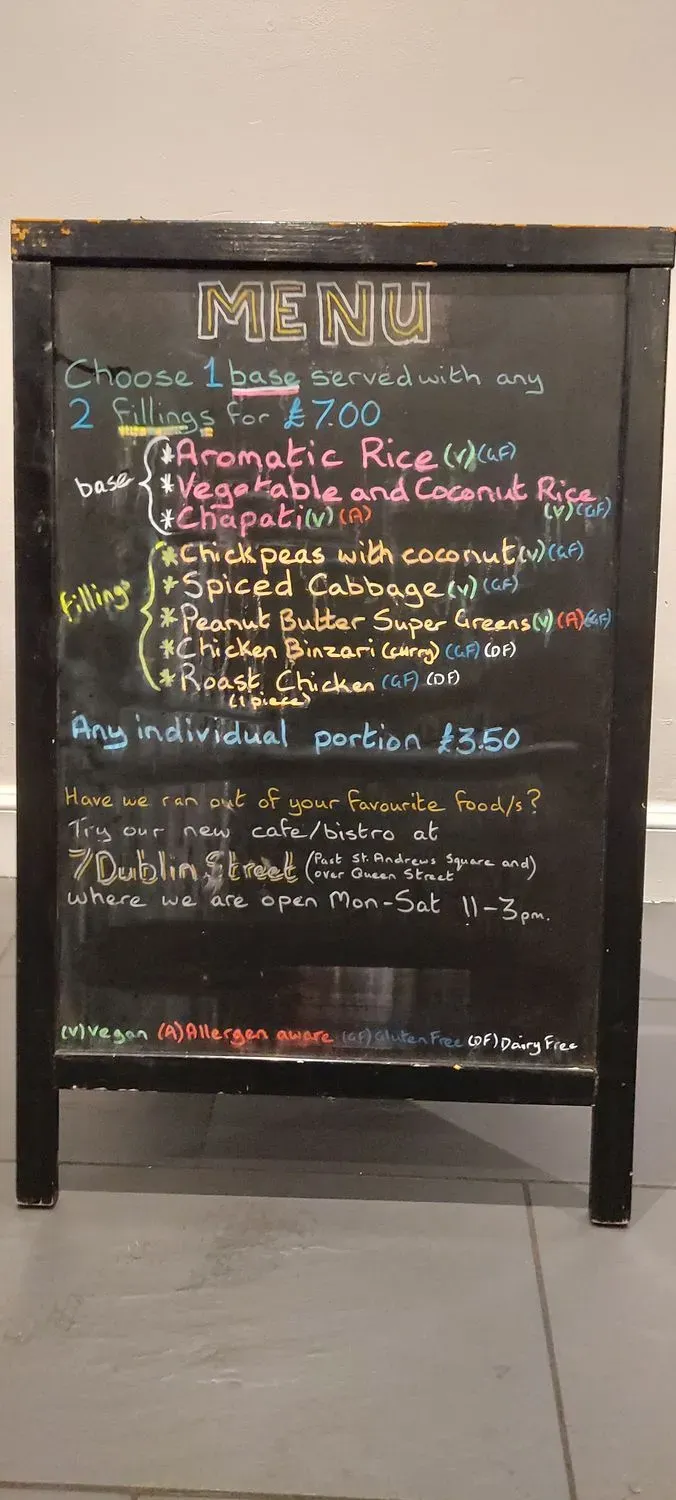 MENU
Choose 1 base served with any
2 fillings for £7.00
base
*Aromatic Rice (V) (GF)
*Vegetable and Coconut Rice
(V) (GF)
*Chapati (V) (A)
fillings
*Chickpeas with coconut (V) (GF)
*Spiced Cabbage (V) (GF)
*Peanut Butter Super Greens (V) (A) (GF)
*Chicken Binzari (curry) (GF) (DF)
*Roast Chicken (GF) (DF)
(1 piece)
Any individual portion £3.50
Have we ran out of your favourite food/s?
Try our new cafe/bistro at
7 Dublin Street (Past St. Andrews Square and
over Queen Street)
where we are open Mon-Sat 11-3pm.
(V) Vegan (A) Allergen aware (GF) Gluten Free (DF) Dairy Free